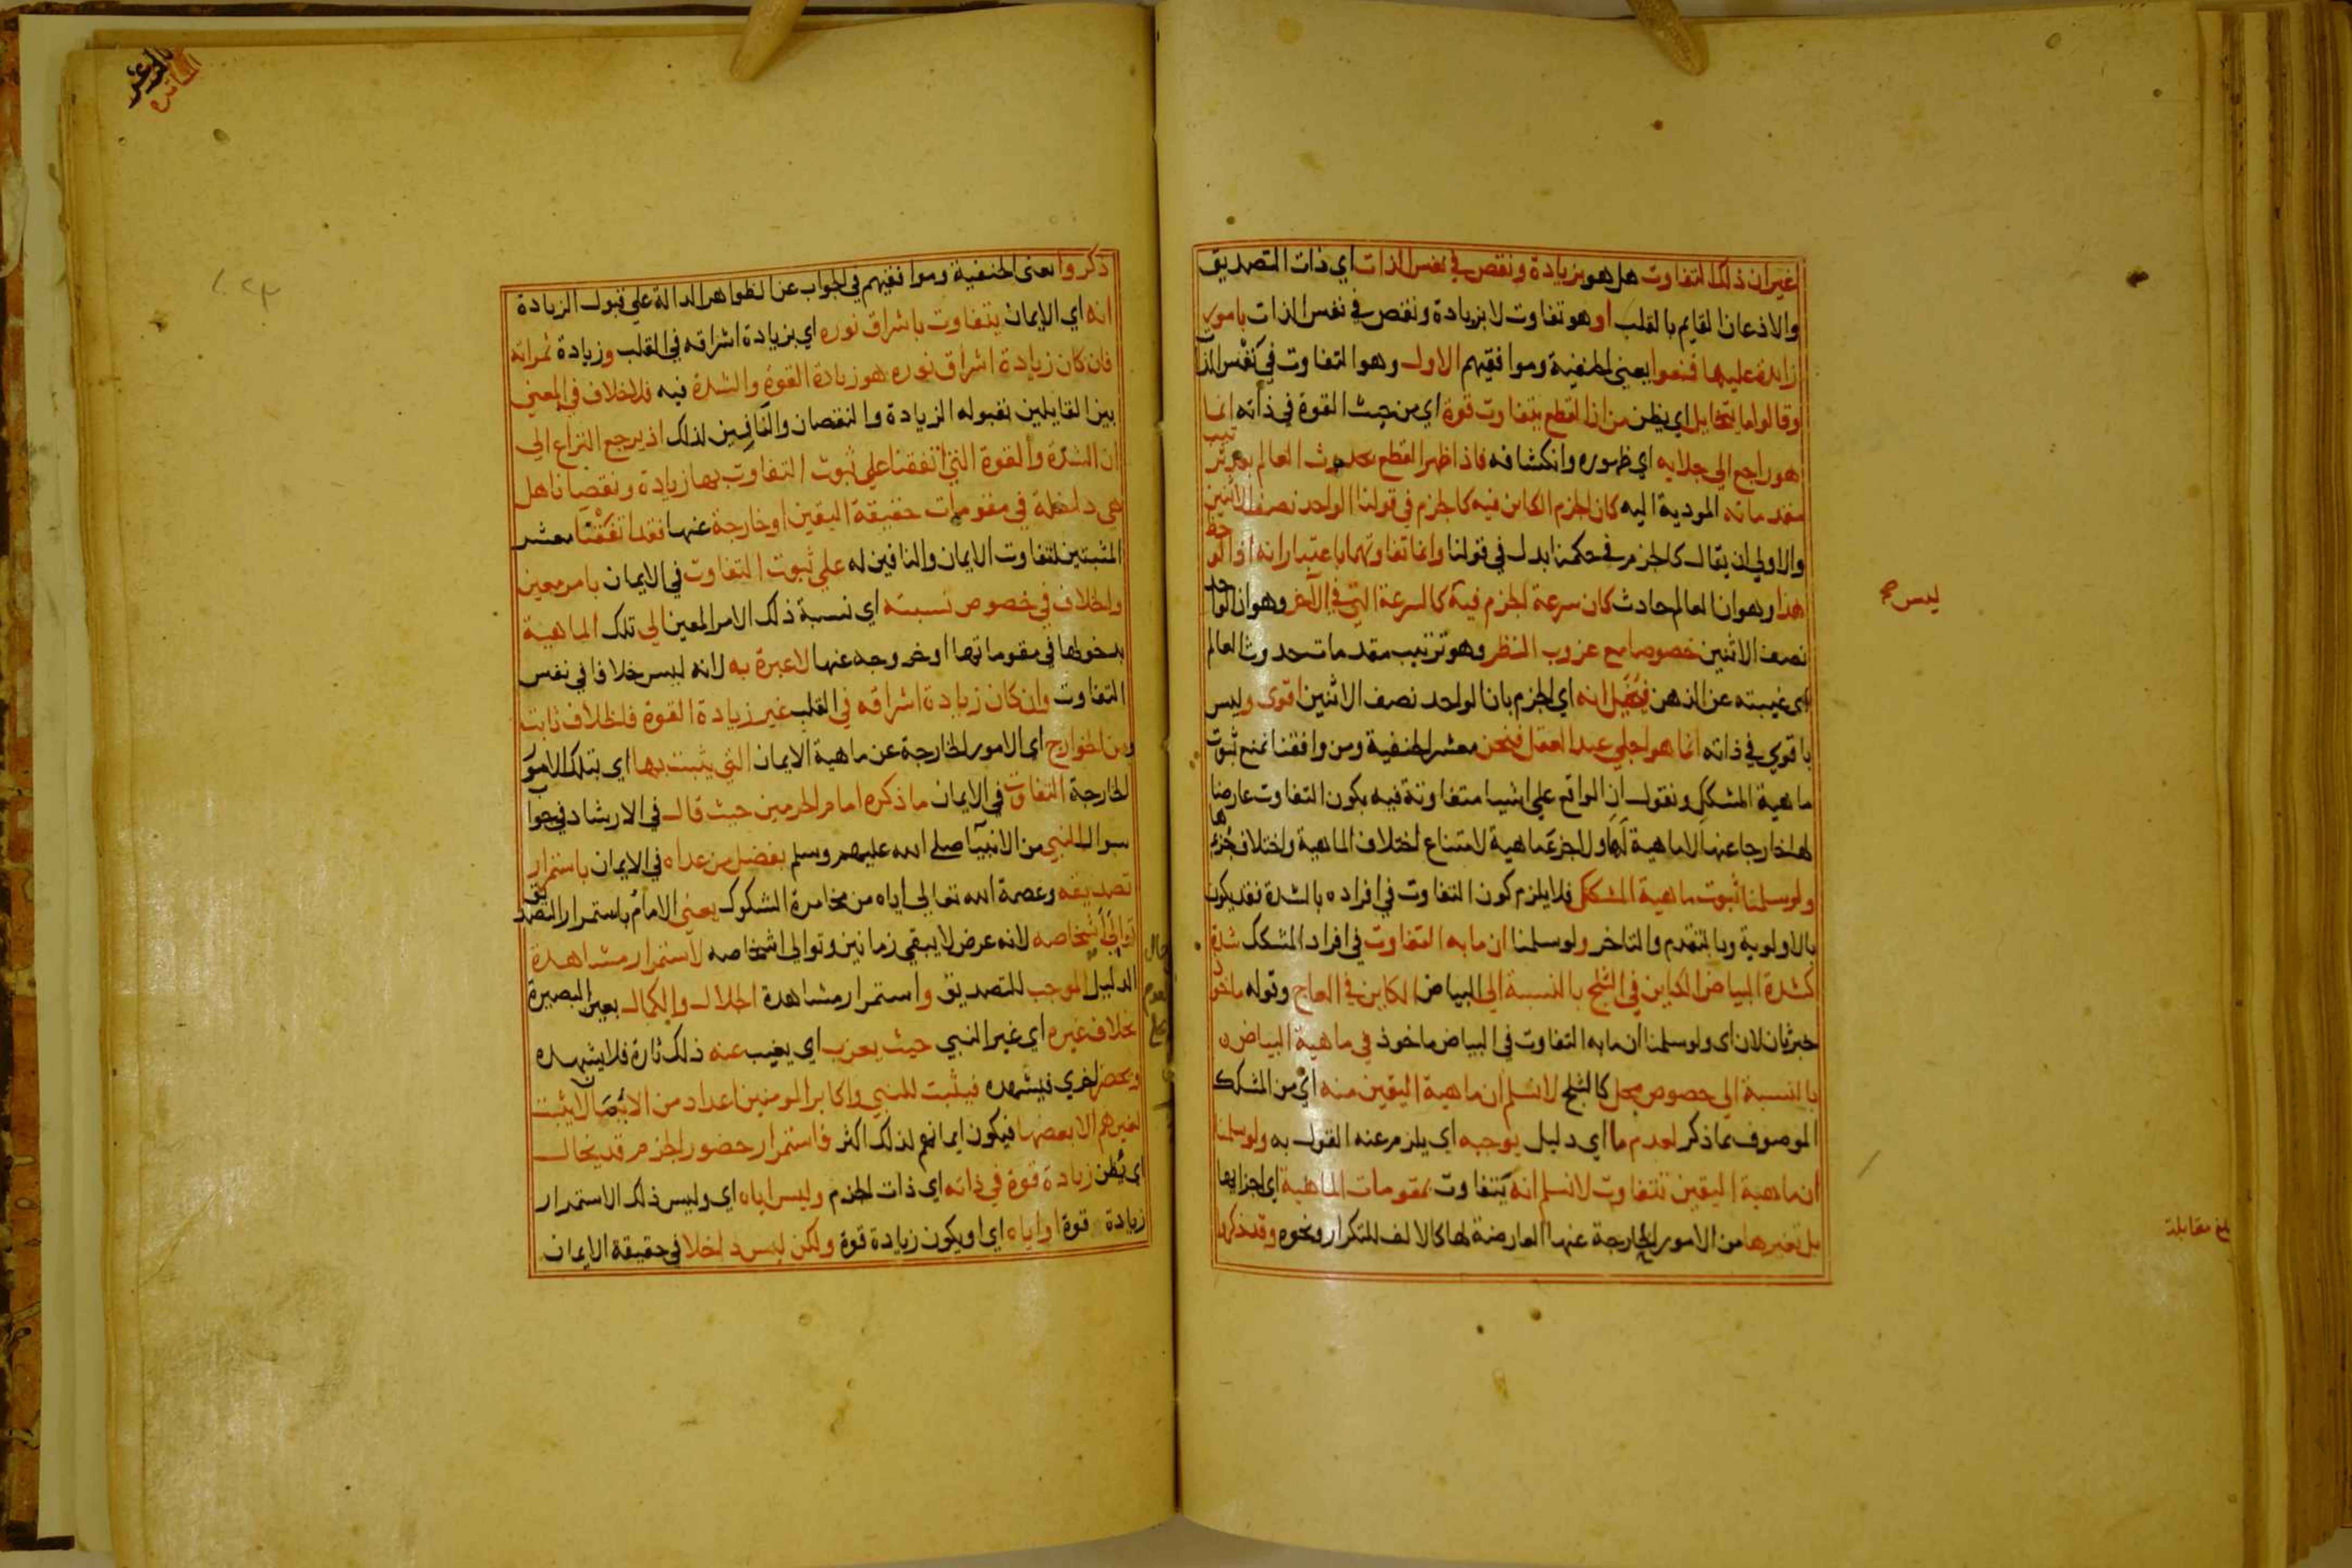 غير ان ذلك التفاوت هل هو بزيادة ونقص في نفس الذات اي ذات التصديق
والاذعان القايم بالقلب او هو تفاوت لا بزيادة ونقص في نفس الذات بامور
زايدة عليها فمنعوا يعني الحنفية وموافقيهم الاول وهو التفاوت في نفس الذات
وقالوا ما يتخايل اي يظن من ان القطع يتفاوت قوة اي من حيث القوة في ذاته انما
هو راجع الي جلايه اي ظهوره وانكشافه فاذا ظهر القطع بحدوث العالم بعد ترتيب
مقدماته المودية اليه كان الجزم الكاين فيه كالجزم في قولنا الواحد نصف الاثنين
والاولي ان يقال كالجزم في حكمنا بدل في قولنا وانما تفاوتهما باعتبار انه اذا لوحظ
هذا وهو ان العالم حادث كان سرعة الجزم فيه كالسرعة التي في الآخر وهو ان الواحد
ليس صح
نصف الاثنين خصوصا مع عزوب النظر وهو ترتيب مقدمات حدوث العالم
اي غيبته عن الذهن فيخيل انه اي الجزم بان الواحد نصف الاثنين اقوى وليس
باقوي في ذاته انما هو اجلي عند العقل فنحن معشر الحنفية ومن وافقنا نمنع ثبوت
ماهية المشكك ونقول ان الواقع علي اشيا متفاوتة فيه يكون التفاوت عارضا
لها خارجا عنها لا ماهية لها ولا جزء ماهية لامتناع اختلاف الماهية واختلاف جزءها
ولو سلمنا ثبوت ماهية المشكك فلا يلزم كون التفاوت في افراده بالشدة فقد يكون
بالاولوية وبالتقدم والتاخر ولو سلمنا ان ما به التفاوت في افراد المشكك شدة
كشدة البياض الكاين في الثلج بالنسبة الي البياض الكاين في العاج وقوله ماخوذ
خبر ثان لان اي ولو سلمنا ان ما به التفاوت في البياض ماخوذ في ماهية البياض
بالنسبة الي خصوص محل كالثلج لا نسلم ان ماهية اليقين منه اي من المشكك
الموصوف بما ذكر لعدم ما اي دليل يوجبه اي يلزم عنه القول به ولو سلمنا
ان ماهية اليقين تتفاوت لا نسلم انه يتفاوت بمقومات الماهية اي اجزايها
بل بغيرها من الامور الخارجة عنها العارضة لها كالالف للتكرار ونحوه وقد ذكروا
بلغ مقابلة
ذكروا يعني الحنفية وموافقيهم في الجواب عن الظواهر الدالة علي قبول الزيادة
انه اي الايمان يتفاوت باشراق نوره اي بزيادة اشراقه في القلب وزيادة ثمراته
فان كان زيادة اشراق نوره هو زيادة القوة والشدة فيه فلا خلاف في المعني
بين القايلين بقبوله الزيادة والنقصان والنافين لذلك اذ يرجع النزاع الي
ان الشدة والقوة التي اتفقنا علي ثبوت التفاوت بها زيادة ونقصانا هل
هي داخلة في مقومات حقيقة اليقين او خارجة عنها فقد اتفقنا معشر
المثبتين لتفاوت الايمان والنافين له علي ثبوت التفاوت في الايمان بامر معين
والخلاف في خصوص نسبته اي نسبة ذلك الامر المعين الي تلك الماهية
بدخولها في مقوماتها او خروجه عنها لا عبرة به لانه ليس خلافا في نفس
التفاوت وان كان زيادة اشراقه في القلب غير زيادة القوة فالخلاف ثابت
ومن الخوارج اي الامور الخارجة عن ماهية الايمان التي يثبت بها اي بتلك الامور
الخارجة التفاوت في الايمان ما ذكره امام الحرمين حيث قال في الارشاد في جواب
سوال النبي من الانبيآ صلي الله عليهم وسلم يفضل من عداه في الايمان باستمرار
تصديقه وعصمة الله تعالي اياه من مخامرة الشكوك يعني الامام باستمرار التصديق
توالي اشخاصه لانه عرض لا يبقي زمانين وتوالي اشخاصه لاستمرار مشاهدة
الدليل الموجب للتصديق واستمرار مشاهدة الجلال والكمال بعين البصيرة
بخلاف غيره اي غير النبي حيث يعزب اي يغيب عنه ذلك تارة فلا يشهده
ويحضر اخري فيشهده فيثبت للنبي واكابر المومنين اعداد من الايمان لا يثبت
لغيرهم الا بعضها فيكون ايمانهم لذلك اكثر فاستمرار حضور الجزم قد يخال
اي يظن زيادة قوة في ذاته اي ذات الجزم وليس اياه اي وليس ذلك الاستمرار
زيادة قوة او اياه اي او يكون زيادة قوة ولكن ليس داخلا في حقيقة الايمان